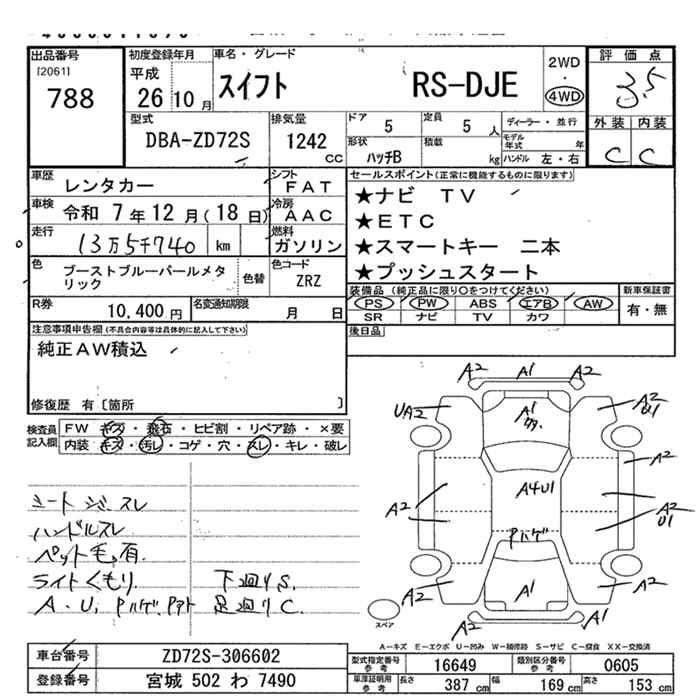 出品番号
[2061]
788
初度登録年月
平成
26年10月
車名・グレード
スイフト RS-DJE
2WD
・
4WD
評価点
3.5
型式
DBA-ZD72S
排気量
1242
CC
ドア
5
定員
5 人
形状
ハッチB
積載
kg
ディーラー・並行
モデル年式 年
ハンドル 左・右
外装 内装
C C
車歴
レンタカー
シフト
FAT
車検
令和 7年12月(18日)
冷房
AAC
走行
13万5千740 km
燃料
ガソリン
色
ブーストブルーパールメタ
リック
色替
色コード
ZRZ
R券
10,400円
名変通知期限
月 日
セールスポイント(正常に機能するものに限ります)
★ナビ TV
★ETC
★スマートキー 二本
★プッシュスタート
装備品 (純正品に限り○をつけてください)
PS PW ABS エアB AW
SR ナビ TV カワ
新車保証書
有・無
後日品
注意事項申告欄(不具合内容等は具体的に記入して下さい)
純正AW積込
修復歴 有〔箇所 〕
検査員
記入欄
FW キズ・飛石・ヒビ割・リペア跡・×要
内装 キズ・汚レ・コゲ・穴・スレ・キレ・破レ
シートシミ、スレ
ハンドルスレ
ペット毛有.
ライトくもり. 下廻りS.
A・U, Pハゲ, Pアト 足廻りC.
A2 A1 A2
UA2
A1
A2
U1
A2
A4U1
A2
A2
U1
Pハゲ
A2
A1
A2
A2 A1 A2
スペア
A-キズ E-エクボ U-凹み W-補修跡 S-サビ C-腐食 XX-交換済
車台番号
ZD72S-306602
登録番号
宮城 502 わ 7490
型式指定番号
参考
16649
類別区分番号
参考
0605
車庫証明用
参考
長さ 387 cm
幅 169 cm
高さ 153 cm